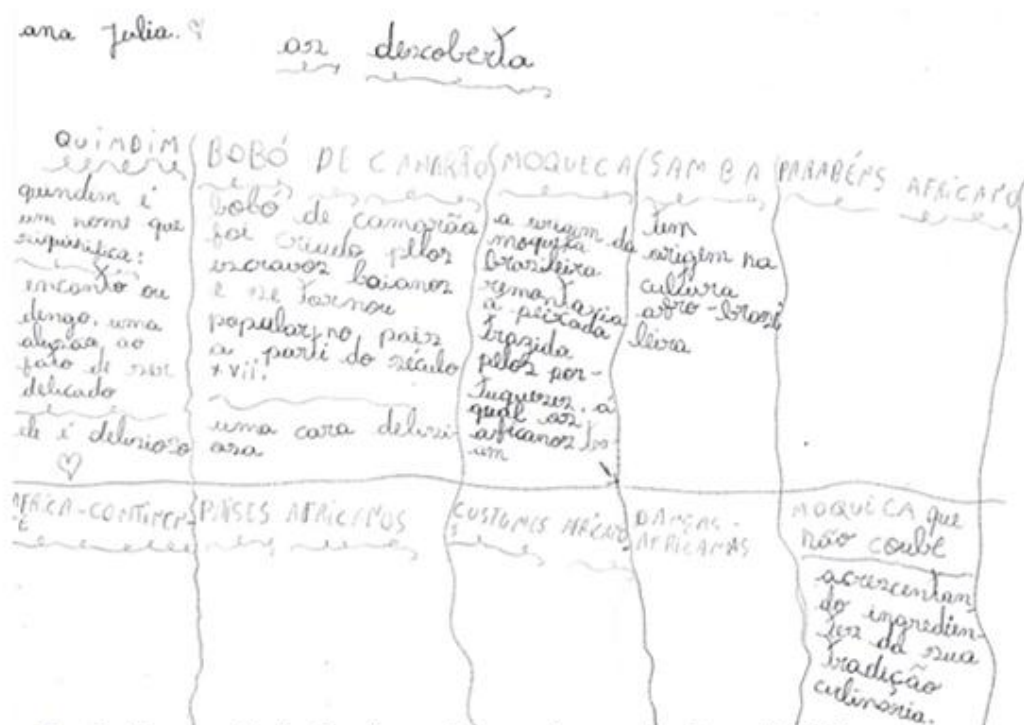 ana Julia.
as descoberta
QUIMDIM
quindim é
um nome que
siguinifica:
encanto ou
dengo, uma
alusão ao
fato de ser
delicado
ele é delisioso
BOBÓ DE CAMARÃO
bobó de camarão
foi criado pelos
escravos baianos
e se tornou
popular, no país
a parti do século
XVII.
uma cara delisi-
osa
MOQUECA
a origem da
moqueca
brasileira
remontaria
a peixada
trazida
pelos por-
tugueses, a
qual os
africanos
um
SAMBA
tem
origem na
cultura
afro-brasi
leira
PARABÉNS AFRICANO
AFRICA-CONTINEN
TE
PAÍSES AFRICANOS
CUSTUMES AFRICANO
DAMÇAS-
AFRICAMAS
MOQUECA que
não coube
acrescentan
do ingredien-
tes da sua
tradição
culinária.